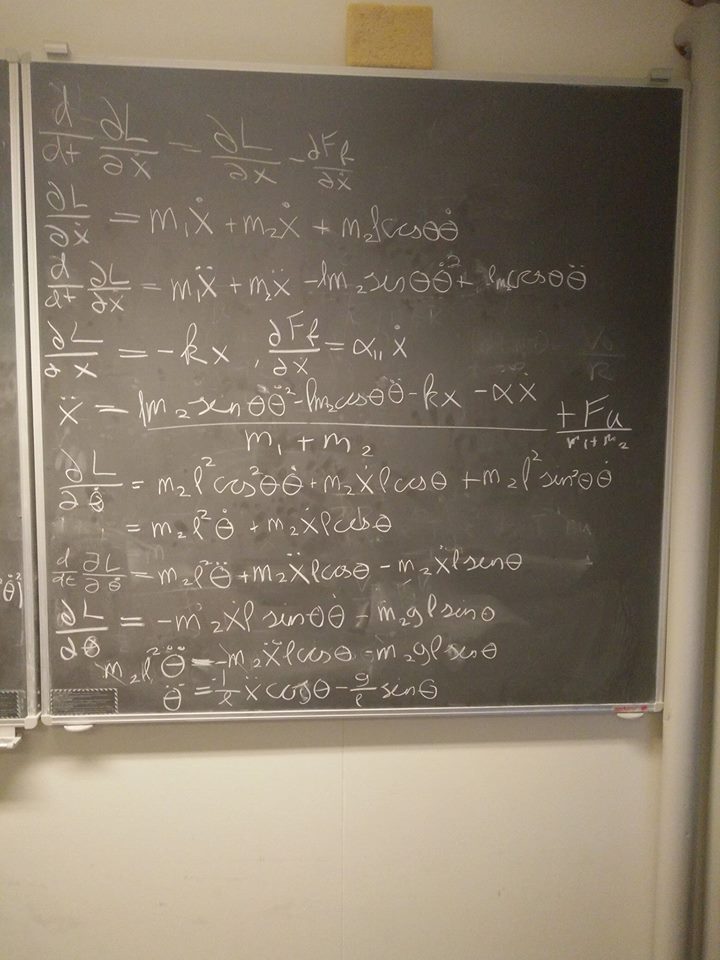 d/dt ∂L/∂ẋ = ∂L/∂x - ∂F_f/∂ẋ
∂L/∂ẋ = m₁ẋ + m₂ẋ + m₂l cosθθ̇
d/dt ∂L/∂ẋ = m₁ẍ + m₂ẍ - lm₂ senθθ̇² + lm₂ cosθθ̈
∂L/∂x = -kx, ∂F_f/∂ẋ = α₁₁ẋ
ẍ = (lm₂ senθθ̇² - lm₂cosθθ̈ - kx - αẋ)/(m₁ + m₂) + Fa/(m₁+m₂)
∂L/∂θ̇ = m₂l²cos²θθ̇ + m₂ẋl cosθ + m₂l² sin²θθ̇
= m₂l²θ̇ + m₂ẋl cosθ
d/dt ∂L/∂θ̇ = m₂l²θ̈ + m₂ẍl cosθ - m₂ẋl senθ
∂L/∂θ = -m₂ẋl sinθθ̇ - m₂gl sinθ
m₂l²θ̈ = -m₂ẍl cosθ - m₂gl senθ
θ̈ = -1/l ẍ cosθ - g/l senθ
θ̈²)